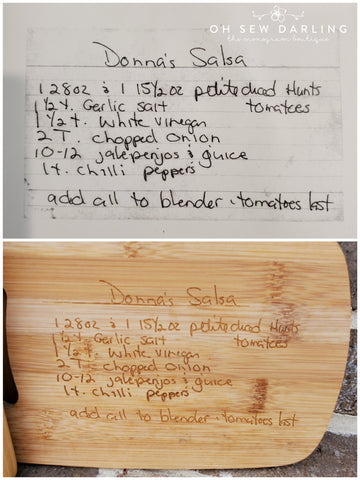 OH SEW DARLING
the monogram boutique
Donna's Salsa
1 28oz & 1 15½oz petite diced Hunts
tomatoes
1½t. Garlic Salt
1½t. White Vinegar
2 T. chopped onion
10-12 jalepenjos & guice
1t. chilli peppers
add all to blender · tomatoes last
Donna's Salsa
1 28oz & 1 15½oz petite diced Hunts
tomatoes
1½t. Garlic Salt
1½t. White Vinegar
2 T. chopped onion
10-12 jalepenjos & guice
1t. chilli peppers
add all to blender · tomatoes last